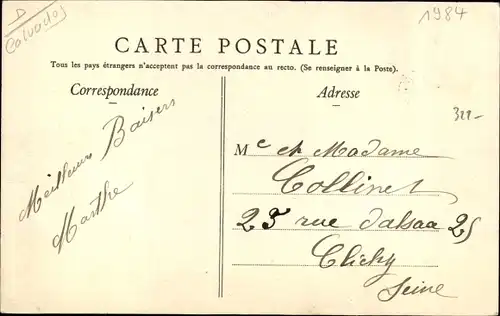 D
Calvados
1984
CARTE POSTALE
Tous les pays étrangers n'acceptent pas la correspondance au recto. (Se renseigner à la Poste).
Correspondance
Adresse
Meilleurs Baisers
Marthe
322-
Mr et Madame
Collinet
25 rue dalsaa 25
Clichy
Seine